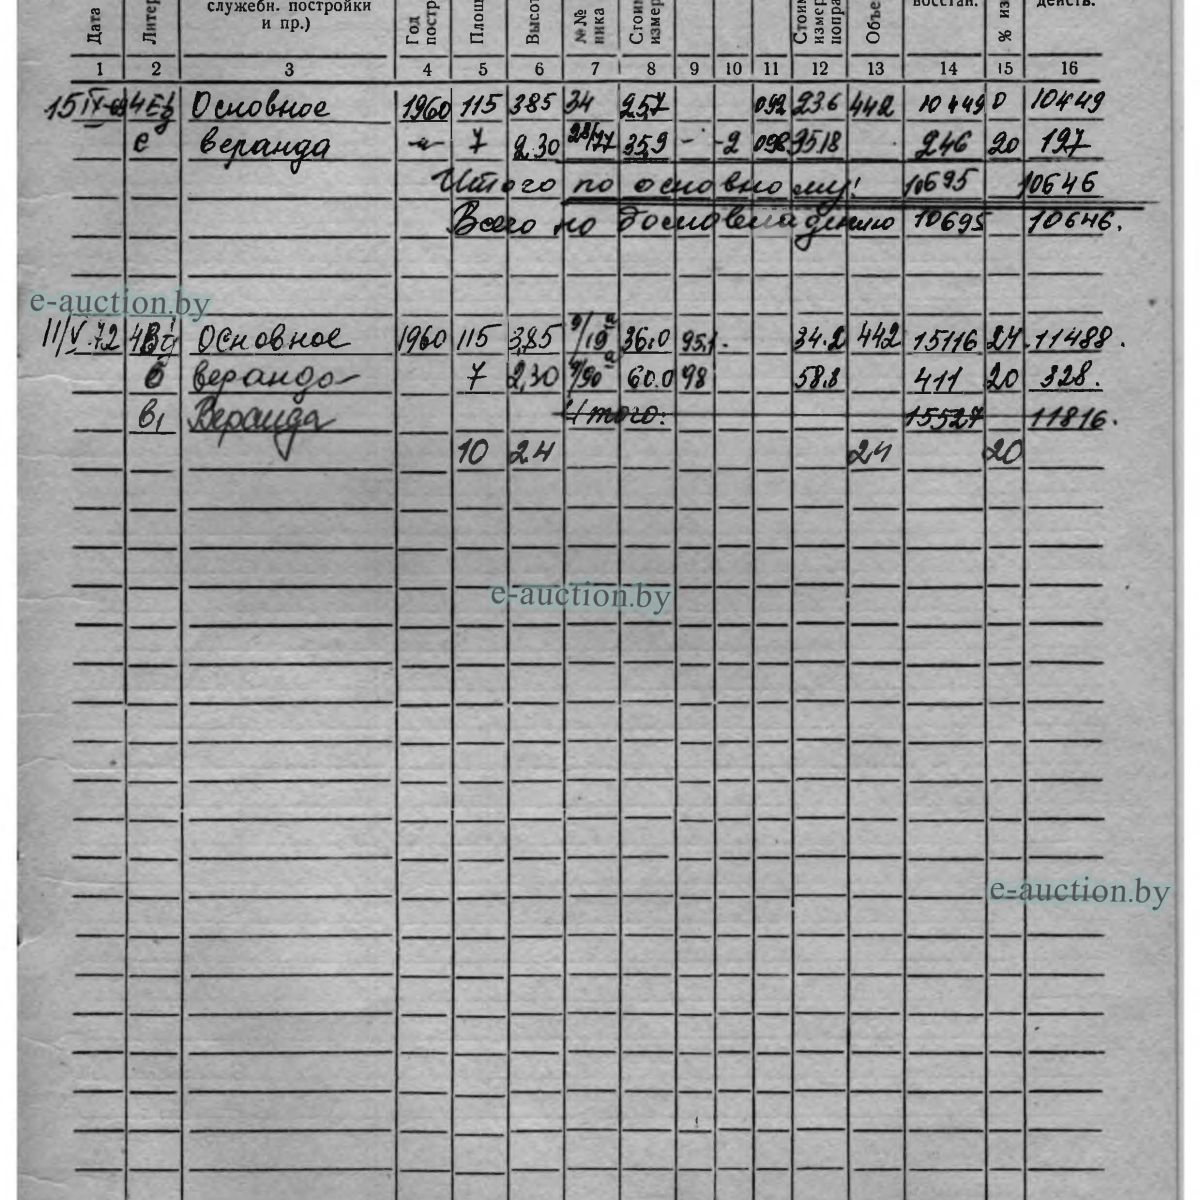 служебн. постройки восстан. действ.
Дата Литер и пр.) Год постр Площ Высот №№ ника Стоим измер Стоим измер попра Объе % из
1 2 3 4 5 6 7 8 9 10 11 12 13 14 15 16
Основное 1960 115 3.85 34 25,7 092 23.6 442 10449 0 10449
е веранда 7 2.30 28/77 35,9 - -2 098 35.18 246 20 197
Итого по основному: 10695 10646
Всего по домовладению 10695 10646.
e-auction.by
11/V.72 Основное 1960 115 3,85 9/19а 36.0 95,1. 34.2 442 15116 24. 11488.
б веранда 7 2,30 60.0 98 58.8 411 20 328.
в1 Веранда Итого: 15527 11816.
10 2.4 24 20
e-auction.by
e-auction.by